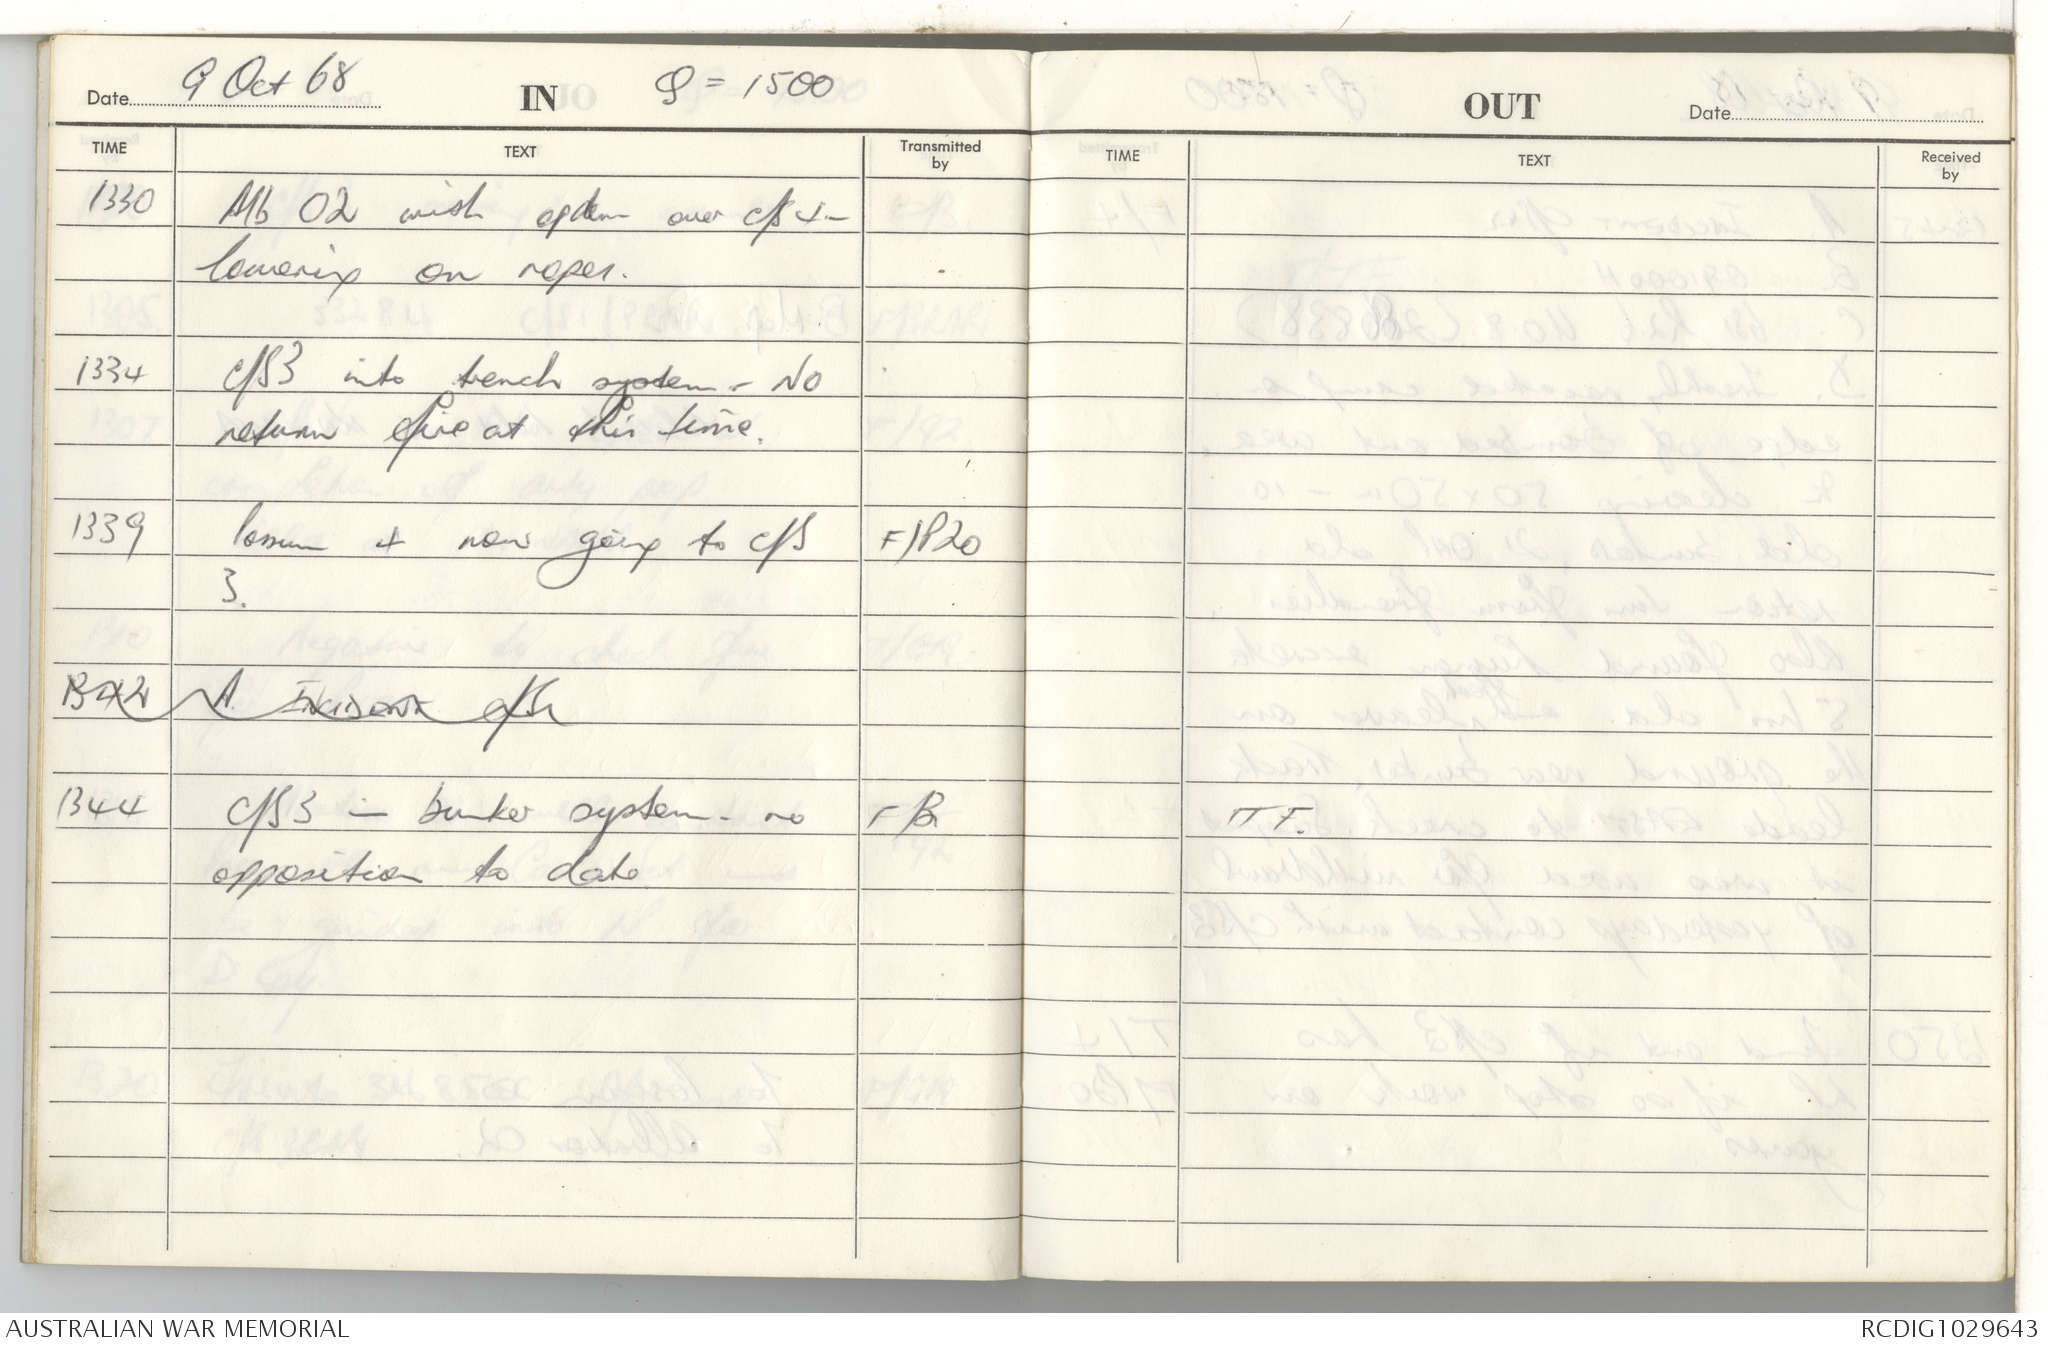 Date 9 Oct 68 IN 9 = 1500
TIME TEXT Transmitted by
1330 Alb 02 with opdem over c/s 4 -
lowering on ropes.
1334 c/s 3 into trench system - No
return fire at this time.
1339 Possum 4 now going to c/s F/P20
3.
1342 A. INCIDENT c/s
1344 c/s 3 in bunker system - no F/B
opposition to date
OUT Date
TIME TEXT Received by
T.F.
AUSTRALIAN WAR MEMORIAL RCDIG1029643